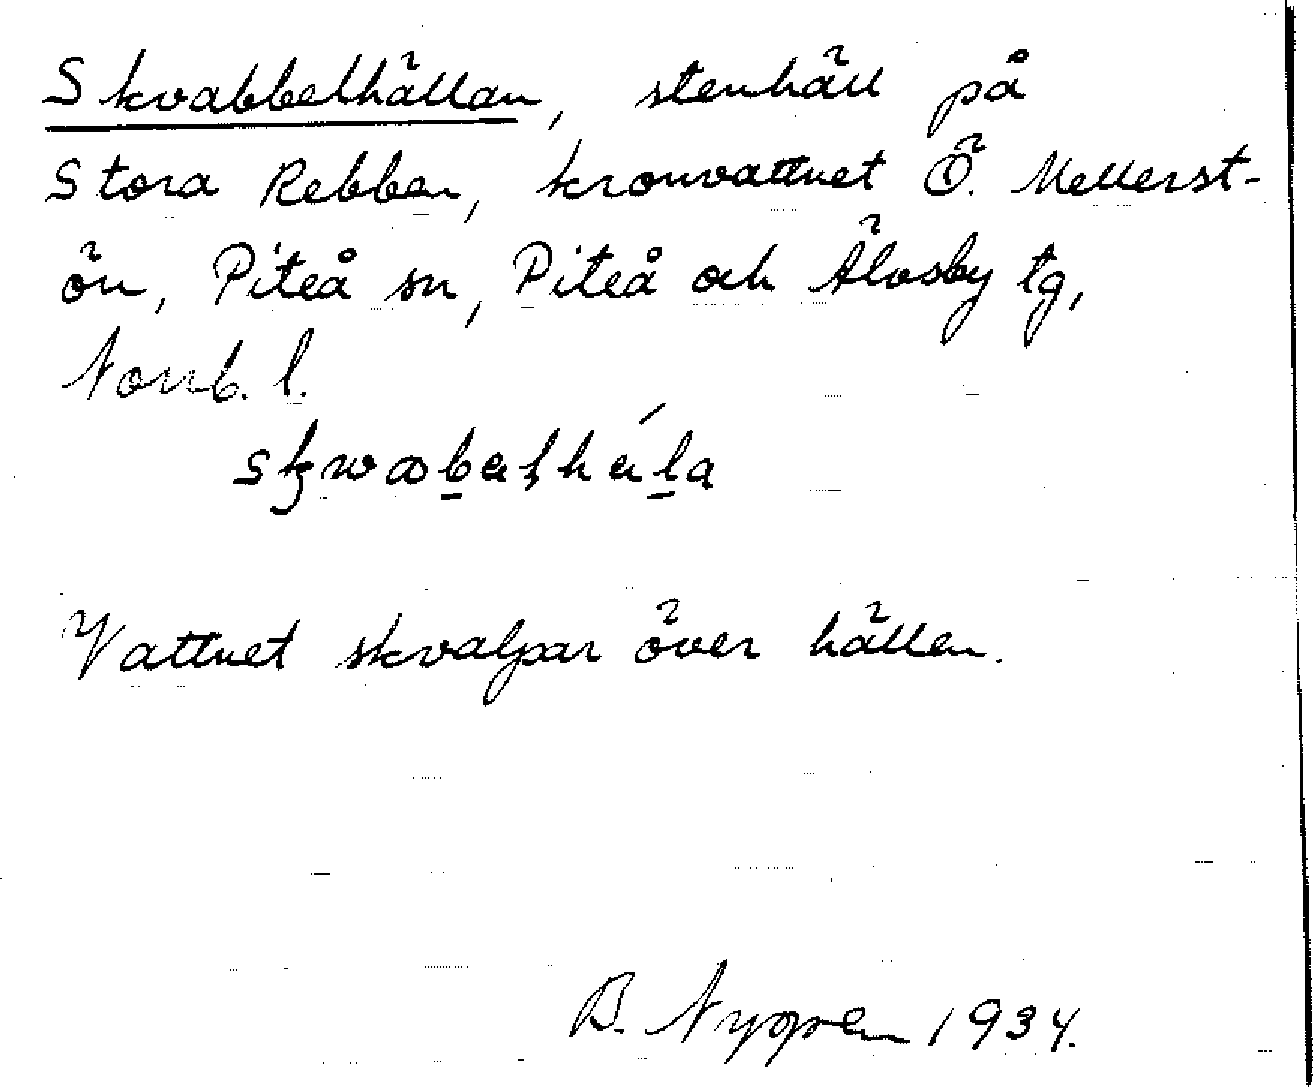 Skvabbelhällan, stenhäll på
Stora Rebben, kronvattnet Ö. Mellerst-
ön, Piteå sn, Piteå och Älvsby tg,
Norrb. l.
Vattnet skvalpar över hällen.
B. Nygren 1934.